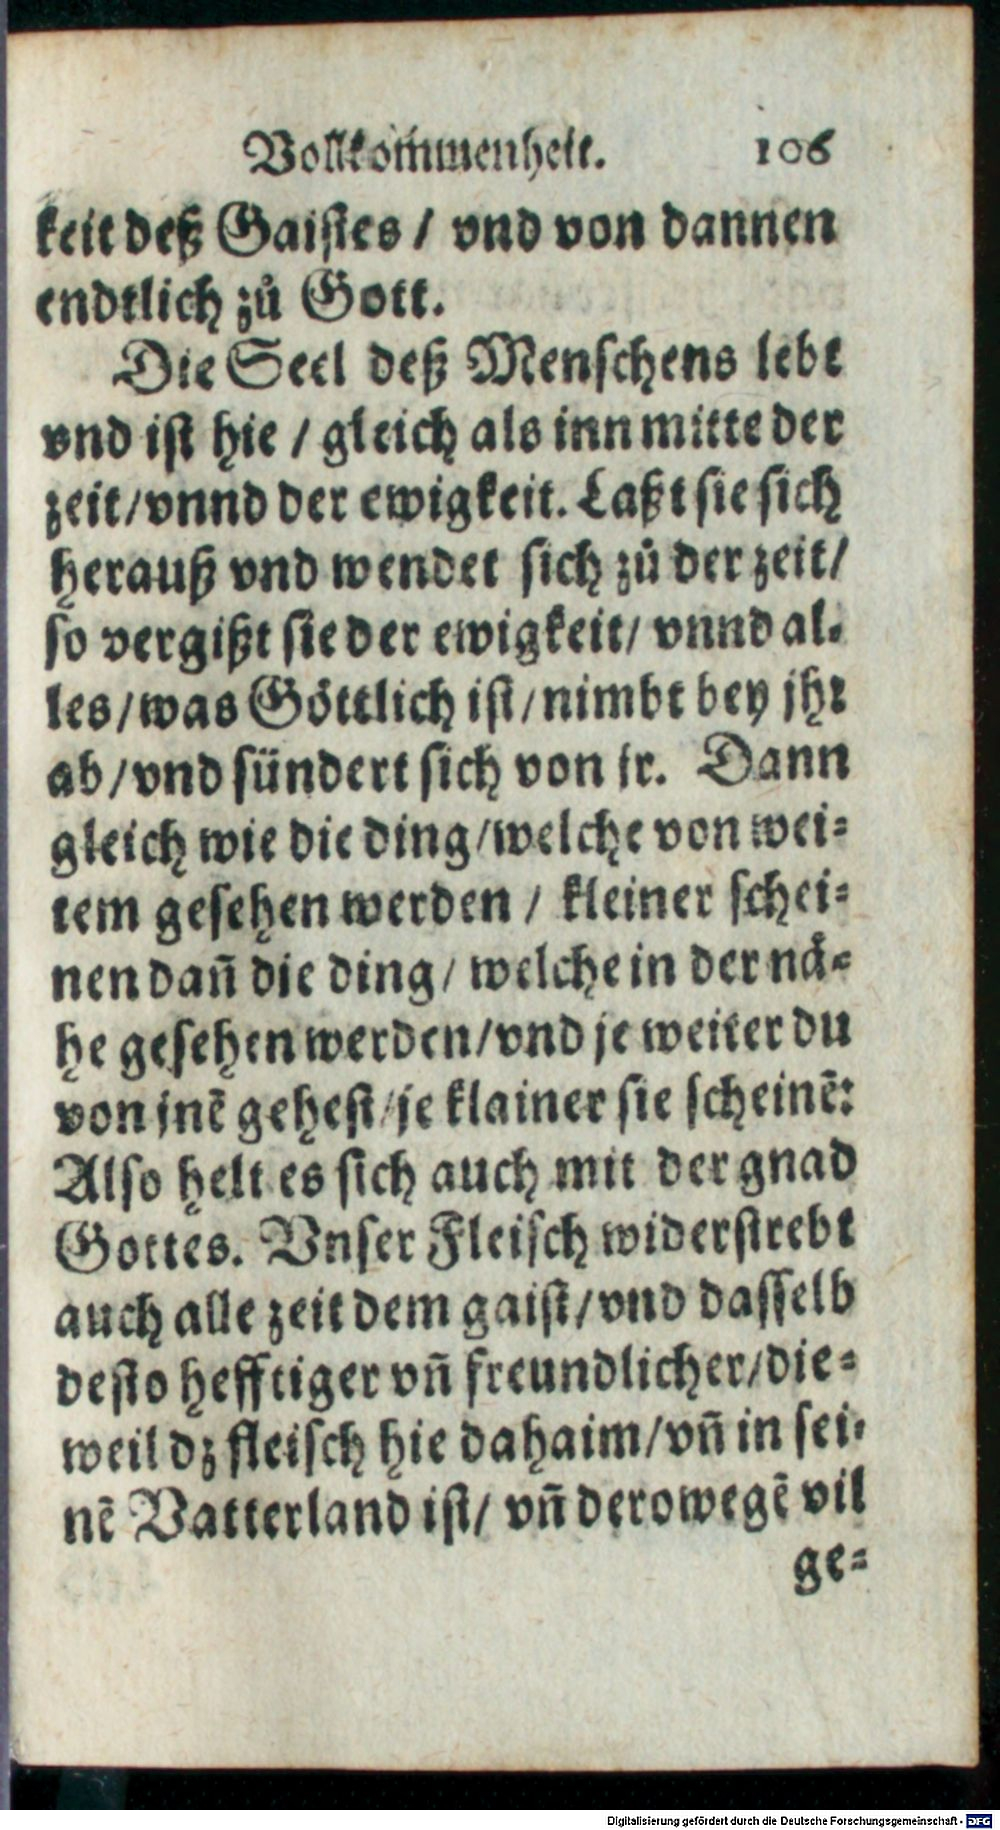 Vollkommenheit. 106
keit deß Gaistes / vnd von dannen
endtlich zů Gott.
Die Seel deß Menschens lebt
vnd ist hie / gleich als inn mitte der
zeit/vnnd der ewigkeit. Laßt sie sich
herauß vnd wendet sich zů der zeit/
so vergißt sie der ewigkeit/ vnnd al-
les/was Göttlich ist/nimbt bey jhr
ab/vnd sündert sich von jr. Dann
gleich wie die ding/welche von wei-
tem gesehen werden / kleiner schei-
nen dañ die ding/ welche in der nä-
he gesehen werden/vnd je weiter du
von jnē gehest/je klainer sie scheinē:
Also helt es sich auch mit der gnad
Gottes. Vnser Fleisch widerstrebt
auch alle zeit dem gaist/vnd dasselb
desto hefftiger vñ freundlicher/die-
weil dz fleisch hie dahaim/vñ in sei-
nē Vatterland ist/ vñ derowegē vil
ge-
Digitalisierung gefördert durch die Deutsche Forschungsgemeinschaft - DFG